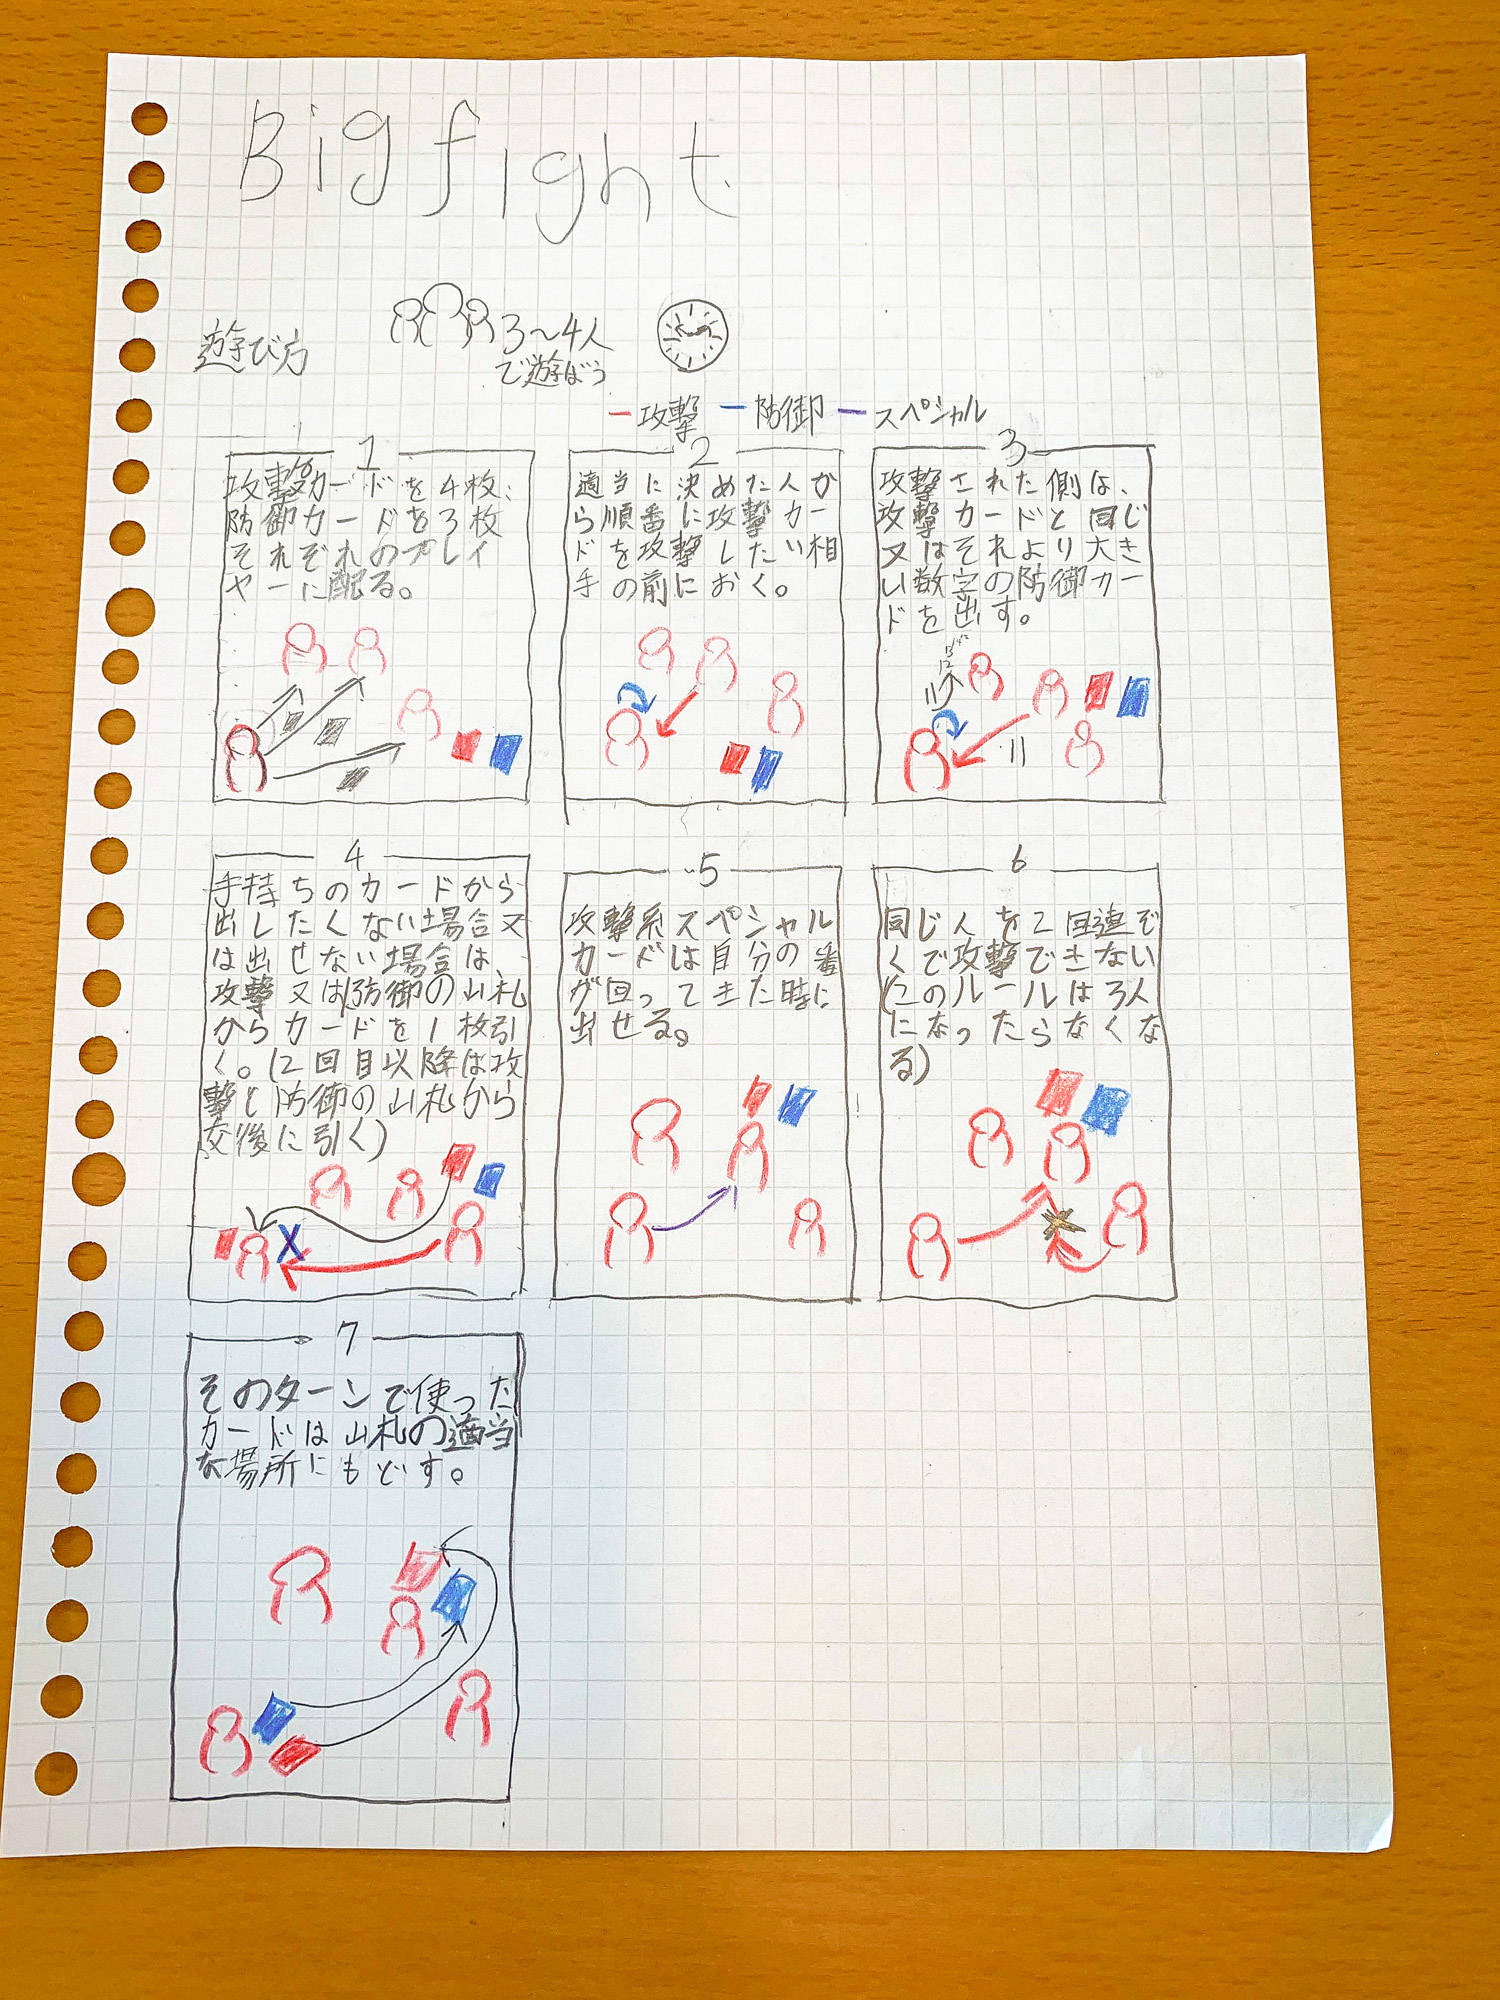 Big fight
遊び方
3〜4人
で遊ぼう
攻撃 防御 スペシャル
1
攻撃カードを4枚、
防御カードを3枚
それぞれのプレイ
ヤーに配る。
2
適当に決めた人か
ら順番に攻撃カー
ドを攻撃したい相
手の前におく。
3
攻撃された側は、
攻撃カードと同じ
又はそれより大き
い数字の防御カー
ドを出す。
12
11
11
4
手持ちのカードから
出したくない場合又
は出せない場合は、
攻撃又は防御の山札
からカードを1枚引
く。(2回目以降は攻
撃と防御の山札から
交後に引く)
5
攻撃系スペシャル
カードは自分の番
が回ってきた時に
出せる。
6
同じ人を2回連ぞ
くで攻撃できない
(このルールは3人
になったらなくな
る)
7
そのターンで使った
カードは山札の適当
な場所にもどす。